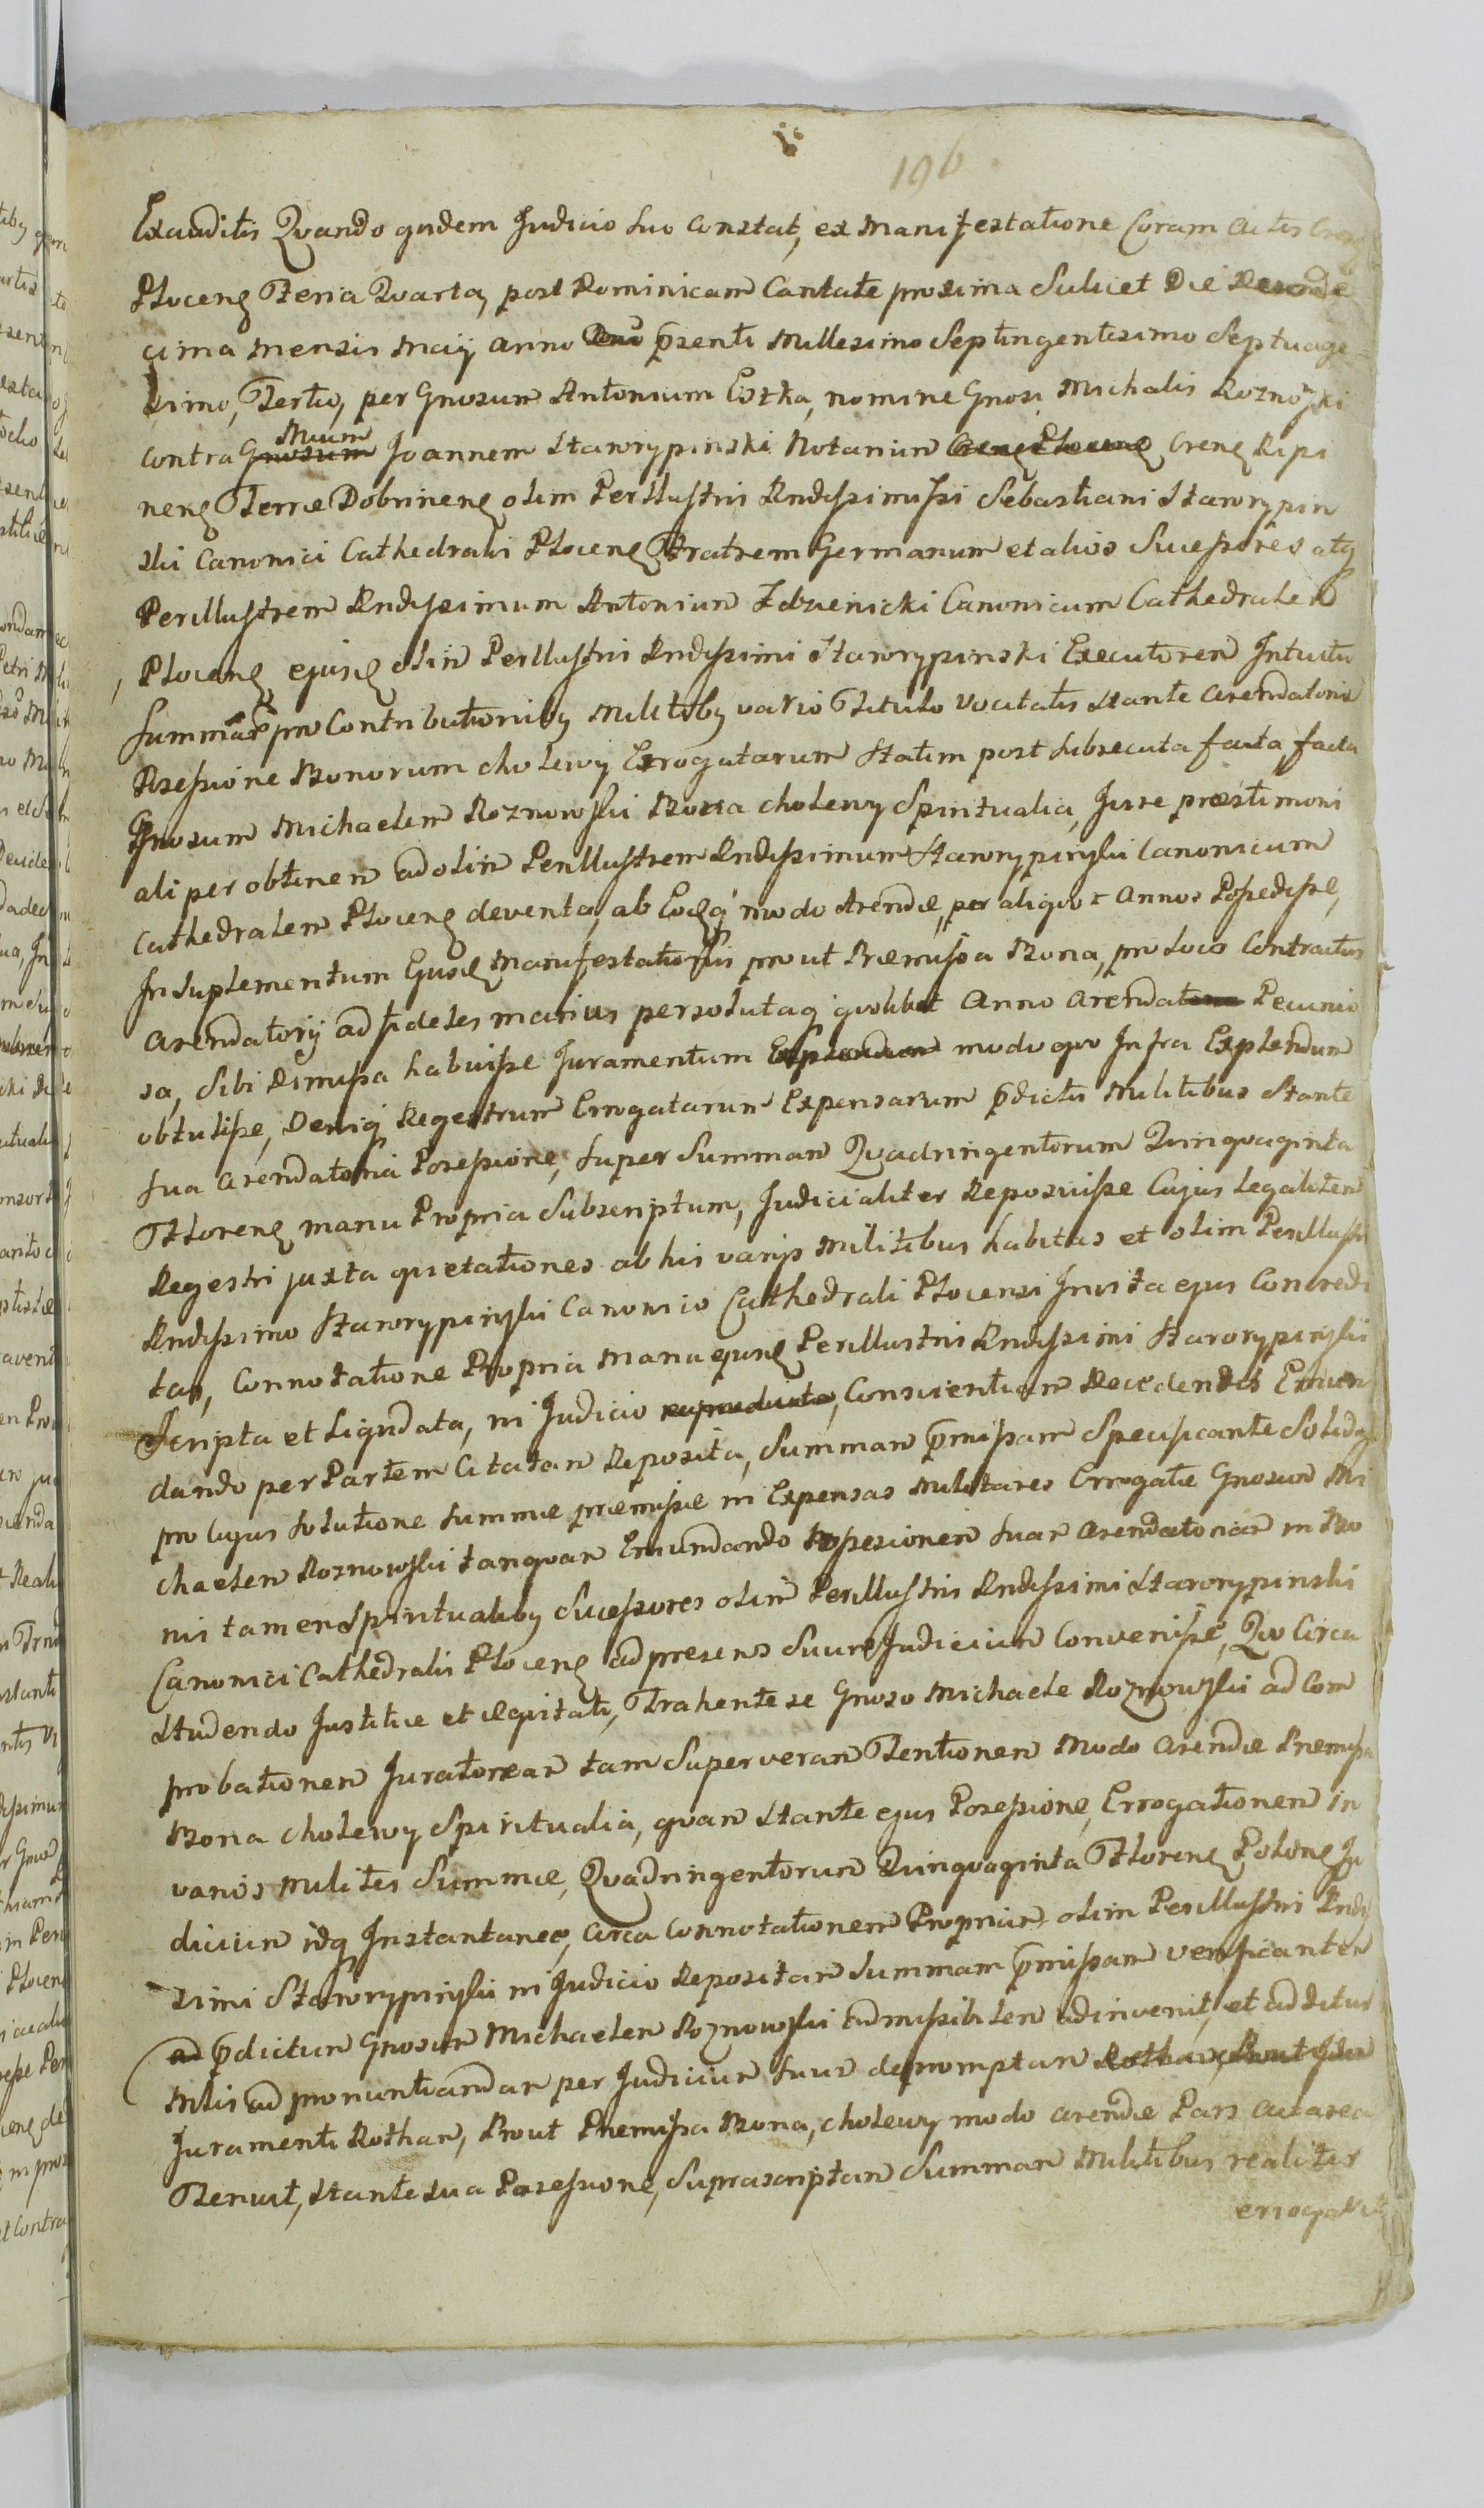 196
Exauditis Quando quidem Judicio suo constat, ex Manifestatione Coram Actis
Plocens Feria Quarta, post Dominicam Cantate proxima Scilicet Die
cima mensis Maij anno p̄senti Millesimo Septingentesimo Septuage-
simo, Tertio, per Gnosum Antonium Estka, nomine Gnosi Michalis Roznowski
contra Gnosum Mcum Joannem Starorypinski Notarium Crens Plocens Crens Ripi
nens Terræ Dobrinens olim Perllustri Rndissimissi Sebastiani Starorypin
ski Canonici Cathedralis Plocens Fratrem Germanum et alios Sucessores atq
Perillustrem Rndissimum Antonium Zdzienicki Canonicum Cathedralem
Plocens ejusq olim Perllustri Rndissimi Starorypinski Executorem Intuitu
Summar pro Contributionibq Militibq vario Titulo Vocitatis Stante arendatoria
Possessione Bonorum cholewy Errogatarum Statim post subsecuta fata, facta
Gnosum Michaelem Roznowski Bona cholewy Spiritualia, Jure præstimoni
ali per obtinen ad olim Perillustrem Rndissimum Starorypinski Canonicum
Cathedralem Plocens deventa, ab Eoq modo Arendæ, per aliquot Annos Possedisse,
In suplementum Ejusq Manifestationis prout Præmissa Bona, pro loco Contractus
arendatorij ad fideles manus persolutaq quolibet Anno arendat Pecunio
sa, sibi Dimissa habuisse Juramentum Explendum modo quo Infra Explendum
obtulisse, Deniq Regestrum Errogatarum Expensarum p̄dictis Militibus Stante
sua arendatoria Possessione, super Summam Quadringentorum Quinquaginta
Florens manu Propria Subscriptum, Judicialiter Reposuisse Cujus legalitem
Regestri juxta quietationes ab his varijs Militibus habitas et olim Perillustri
Rndissimo Starorypinski Canonico Cathedrali Plocensi In vita ejus Concredi
tas, Connotatione Propria Manu ejusq Perillustri Rndissimi Starorypinski
Scripta et Liquidata, in Judicio reproducta, Conscientiam Decedentis Emun
dando per Partem Citatam Reposita, Summam p̄missam Specificante
pro cujus Solutione Summæ præmissæ in Expensas Militares Errogatæ Gnosum Mi
chaelem Roznowski tanquam Emundando possesionem suam arendatoriam in Bo
nis tamen Spiritualibq Sucessores olim Perillustri Rndissimi Starorypinski
Canonici Cathedralis Plocens ad presens Suum Judicium Convenisse, Quo Circa
Studendo Justitiæ et æquitati, Trahente se Gnoso Michaele Roznowski ad Com
probationem Juratoream tam Super veram Tentionem Modo arendæ Præmissa
Bona cholewy Spiritualia, quam Stante ejus Possessione, Errogationem in
varios Milites Summæ, Quadringentorum Quinquaginta Florens Polons Ju
dicium idq Instantaneo, circa Connotationem Propriam olim Perillustri Rndis
simi Starorypinski in Judicio Repositam Summam p̄missam verificantem
ad p̄dictum Gnosum Michaelem Roznowski admissibilem adinvenit, et additur
Mlis ad pronuntiandam per Judicium suum depromptam Rotham, Prout
Juramenti Rotham, Prout Præmissa Bona, cholewy modo arendæ Pars actorea
Tenuit, Stante sua Possessione, Suprascriptam Summam Militibus realiter
errogavit